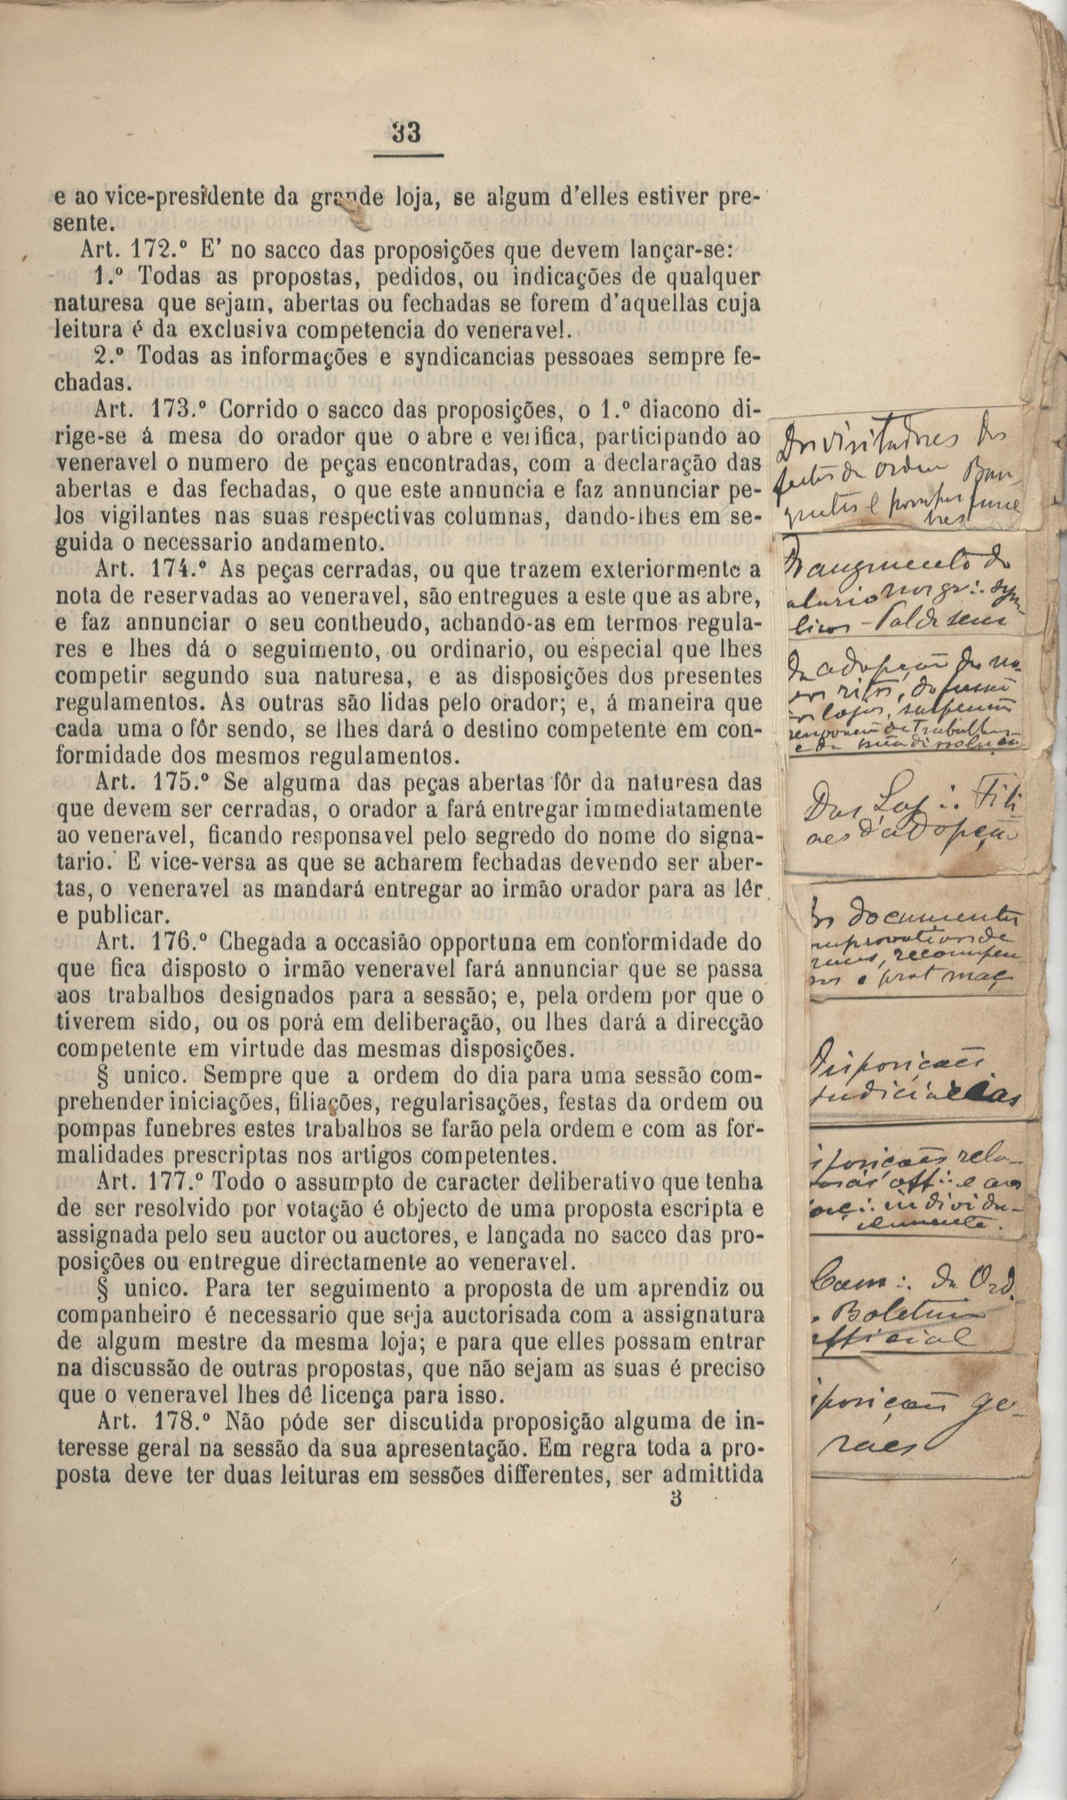 33
e ao vice-presidente da grande loja, se algum d'elles estiver pre-
sente.
Art. 172.º E' no sacco das proposições que devem lançar-se:
1.º Todas as propostas, pedidos, ou indicações de qualquer
naturesa que sejam, abertas ou fechadas se forem d'aquellas cuja
leitura é da exclusiva competencia do veneravel.
2.º Todas as informações e syndicancias pessoaes sempre fe-
chadas.
Art. 173.º Corrido o sacco das proposições, o 1.º diacono di-
rige-se á mesa do orador que o abre e verifica, participando ao
veneravel o numero de peças encontradas, com a declaração das
abertas e das fechadas, o que este annuncia e faz annunciar pe-
los vigilantes nas suas respectivas columnas, dando-lhes em se-
guida o necessario andamento.
Art. 174.º As peças cerradas, ou que trazem exteriormente a
nota de reservadas ao veneravel, são entregues a este que as abre,
e faz annunciar o seu contheudo, achando-as em termos regula-
res e lhes dá o seguimento, ou ordinario, ou especial que lhes
competir segundo sua naturesa, e as disposições dos presentes
regulamentos. As outras são lidas pelo orador; e, á maneira que
cada uma o fôr sendo, se lhes dará o destino competente em con-
formidade dos mesmos regulamentos.
Art. 175.º Se alguma das peças abertas fôr da naturesa das
que devem ser cerradas, o orador a fará entregar immediatamente
ao veneravel, ficando responsavel pelo segredo do nome do signa-
tario. E vice-versa as que se acharem fechadas devendo ser aber-
tas, o veneravel as mandará entregar ao irmão orador para as lêr
e publicar.
Art. 176.º Chegada a occasião opportuna em conformidade do
que fica disposto o irmão veneravel fará annunciar que se passa
aos trabalhos designados para a sessão; e, pela ordem por que o
tiverem sido, ou os porá em deliberação, ou lhes dará a direcção
competente em virtude das mesmas disposições.
§ unico. Sempre que a ordem do dia para uma sessão com-
prehender iniciações, filiações, regularisações, festas da ordem ou
pompas funebres estes trabalhos se farão pela ordem e com as for-
malidades prescriptas nos artigos competentes.
Art. 177.º Todo o assumpto de caracter deliberativo que tenha
de ser resolvido por votação é objecto de uma proposta escripta e
assignada pelo seu auctor ou auctores, e lançada no sacco das pro-
posições ou entregue directamente ao veneravel.
§ unico. Para ter seguimento a proposta de um aprendiz ou
companheiro é necessario que seja auctorisada com a assignatura
de algum mestre da mesma loja; e para que elles possam entrar
na discussão de outras propostas, que não sejam as suas é preciso
que o veneravel lhes dê licença para isso.
Art. 178.º Não póde ser discutida proposição alguma de in-
teresse geral na sessão da sua apresentação. Em regra toda a pro-
posta deve ter duas leituras em sessões differentes, ser admittida
3
Dos visitadores das
festas da ordem Ban
quetes e pompas fune
bres
augmento de
alario nos gr∴ sym
licos
da adopção de no
vos ritos, da fusão
lojas, suspensão
Das Loj∴ Fili
aes d'adopção
documentos
recompen
Disposições
Judiciaeias
relo
off∴ e aos
individu-
almente.
Cam∴ da Ord.
Boletim
official
posições ge-
raes